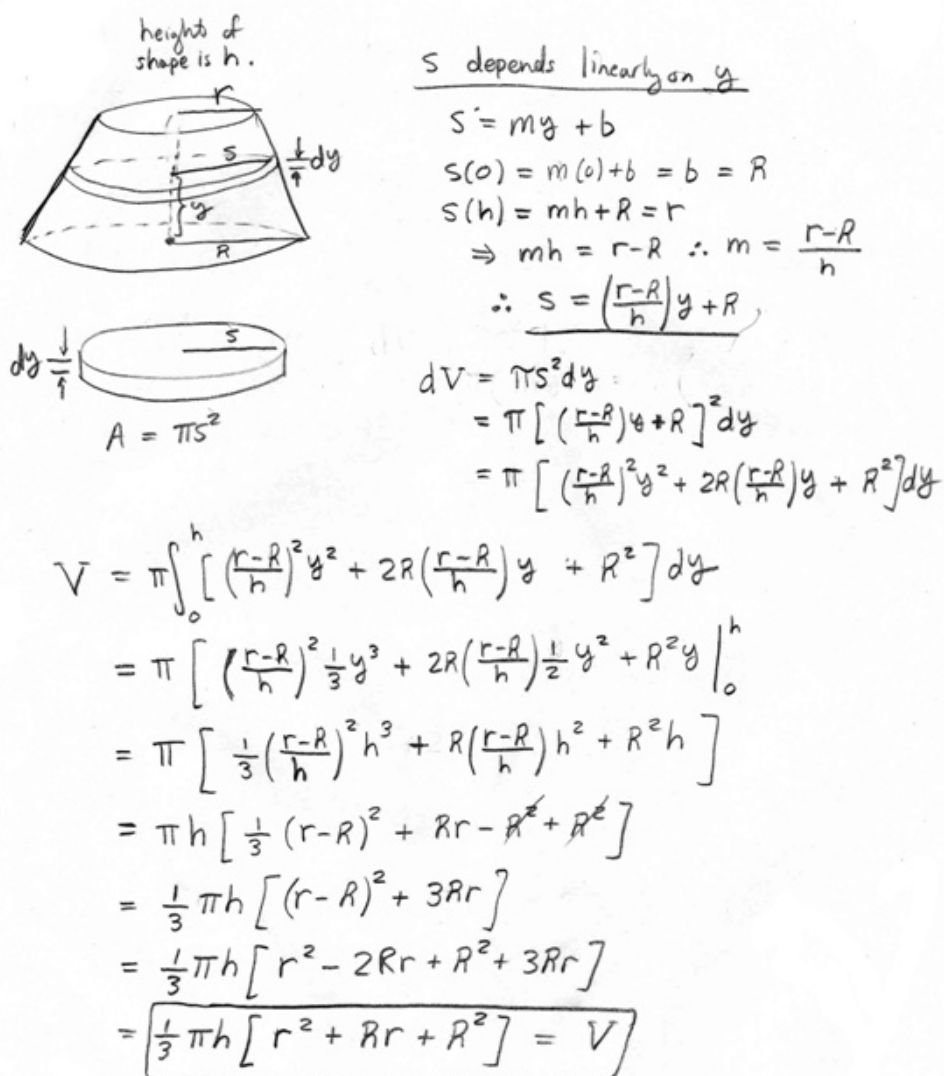 height of
shape is h.
r
s
dy
y
R
dy
s
A = πs²
s depends linearly on y
s = my + b
s(0) = m(0)+b = b = R
s(h) = mh+R = r
⇒ mh = r-R ∴ m = (r-R)/h
∴ s = ((r-R)/h)y + R
dV = πs²dy
= π[((r-R)/h)y + R]²dy
= π[((r-R)/h)²y² + 2R((r-R)/h)y + R²]dy
V = π∫₀ʰ[((r-R)/h)²y² + 2R((r-R)/h)y + R²]dy
= π[((r-R)/h)² 1/3 y³ + 2R((r-R)/h) 1/2 y² + R²y |₀ʰ
= π[1/3((r-R)/h)²h³ + R((r-R)/h)h² + R²h]
= πh[1/3(r-R)² + Rr - R² + R²]
= 1/3 πh[(r-R)² + 3Rr]
= 1/3 πh[r² - 2Rr + R² + 3Rr]
= 1/3 πh[r² + Rr + R²] = V